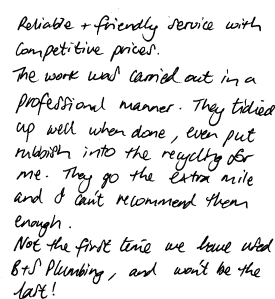 Reliable + friendly service with
competitive prices.
The work was carried out in a
professional manner. They tidied
up well when done, even put
rubbish into the recycling for
me. They go the extra mile
and I can't recommend them
enough.
Not the first time we have used
B+S Plumbing, and won't be the
last!